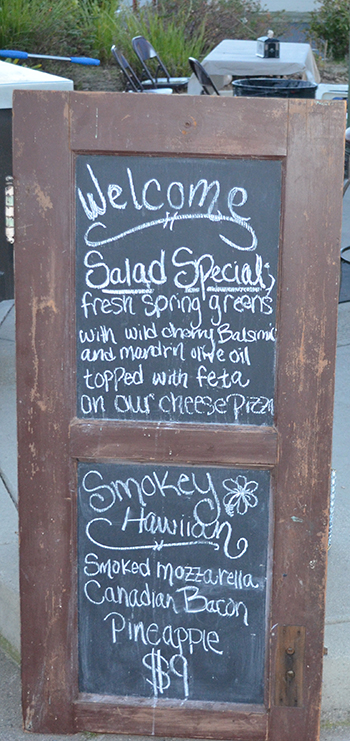 Welcome
Salad Special;
fresh spring greens
with wild cherry Balsmic
and mandrin olive oil
topped with feta
on our cheese Pizza
Smokey
Hawiian
Smoked mozzarella
Canadian Bacon
Pineapple
$9